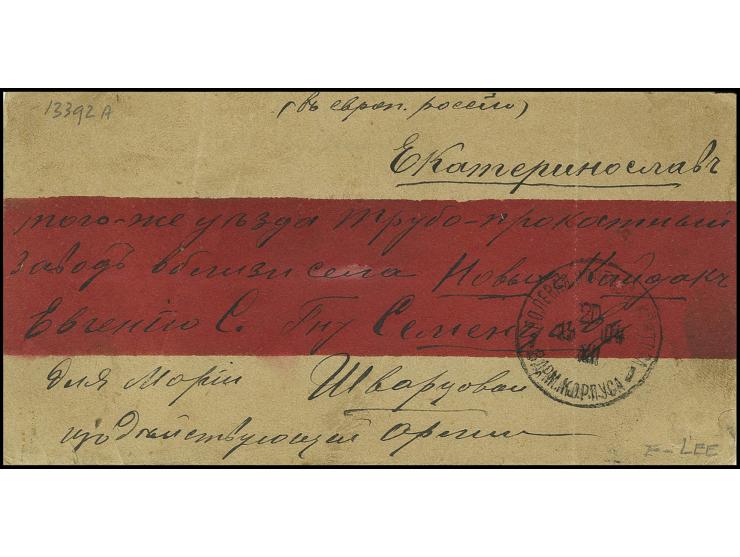 13392A
(въ европ. россiю)
Екатеринославъ
того-же уѣзда трубо-прокатный
заводъ вблизи села Новый Кайдакъ
Евгенiю С. Гну Семен
для Марiи Шварцовой
изъ Действующей Армiи
20
13 04
XII
КОРПУСА
F-LEE